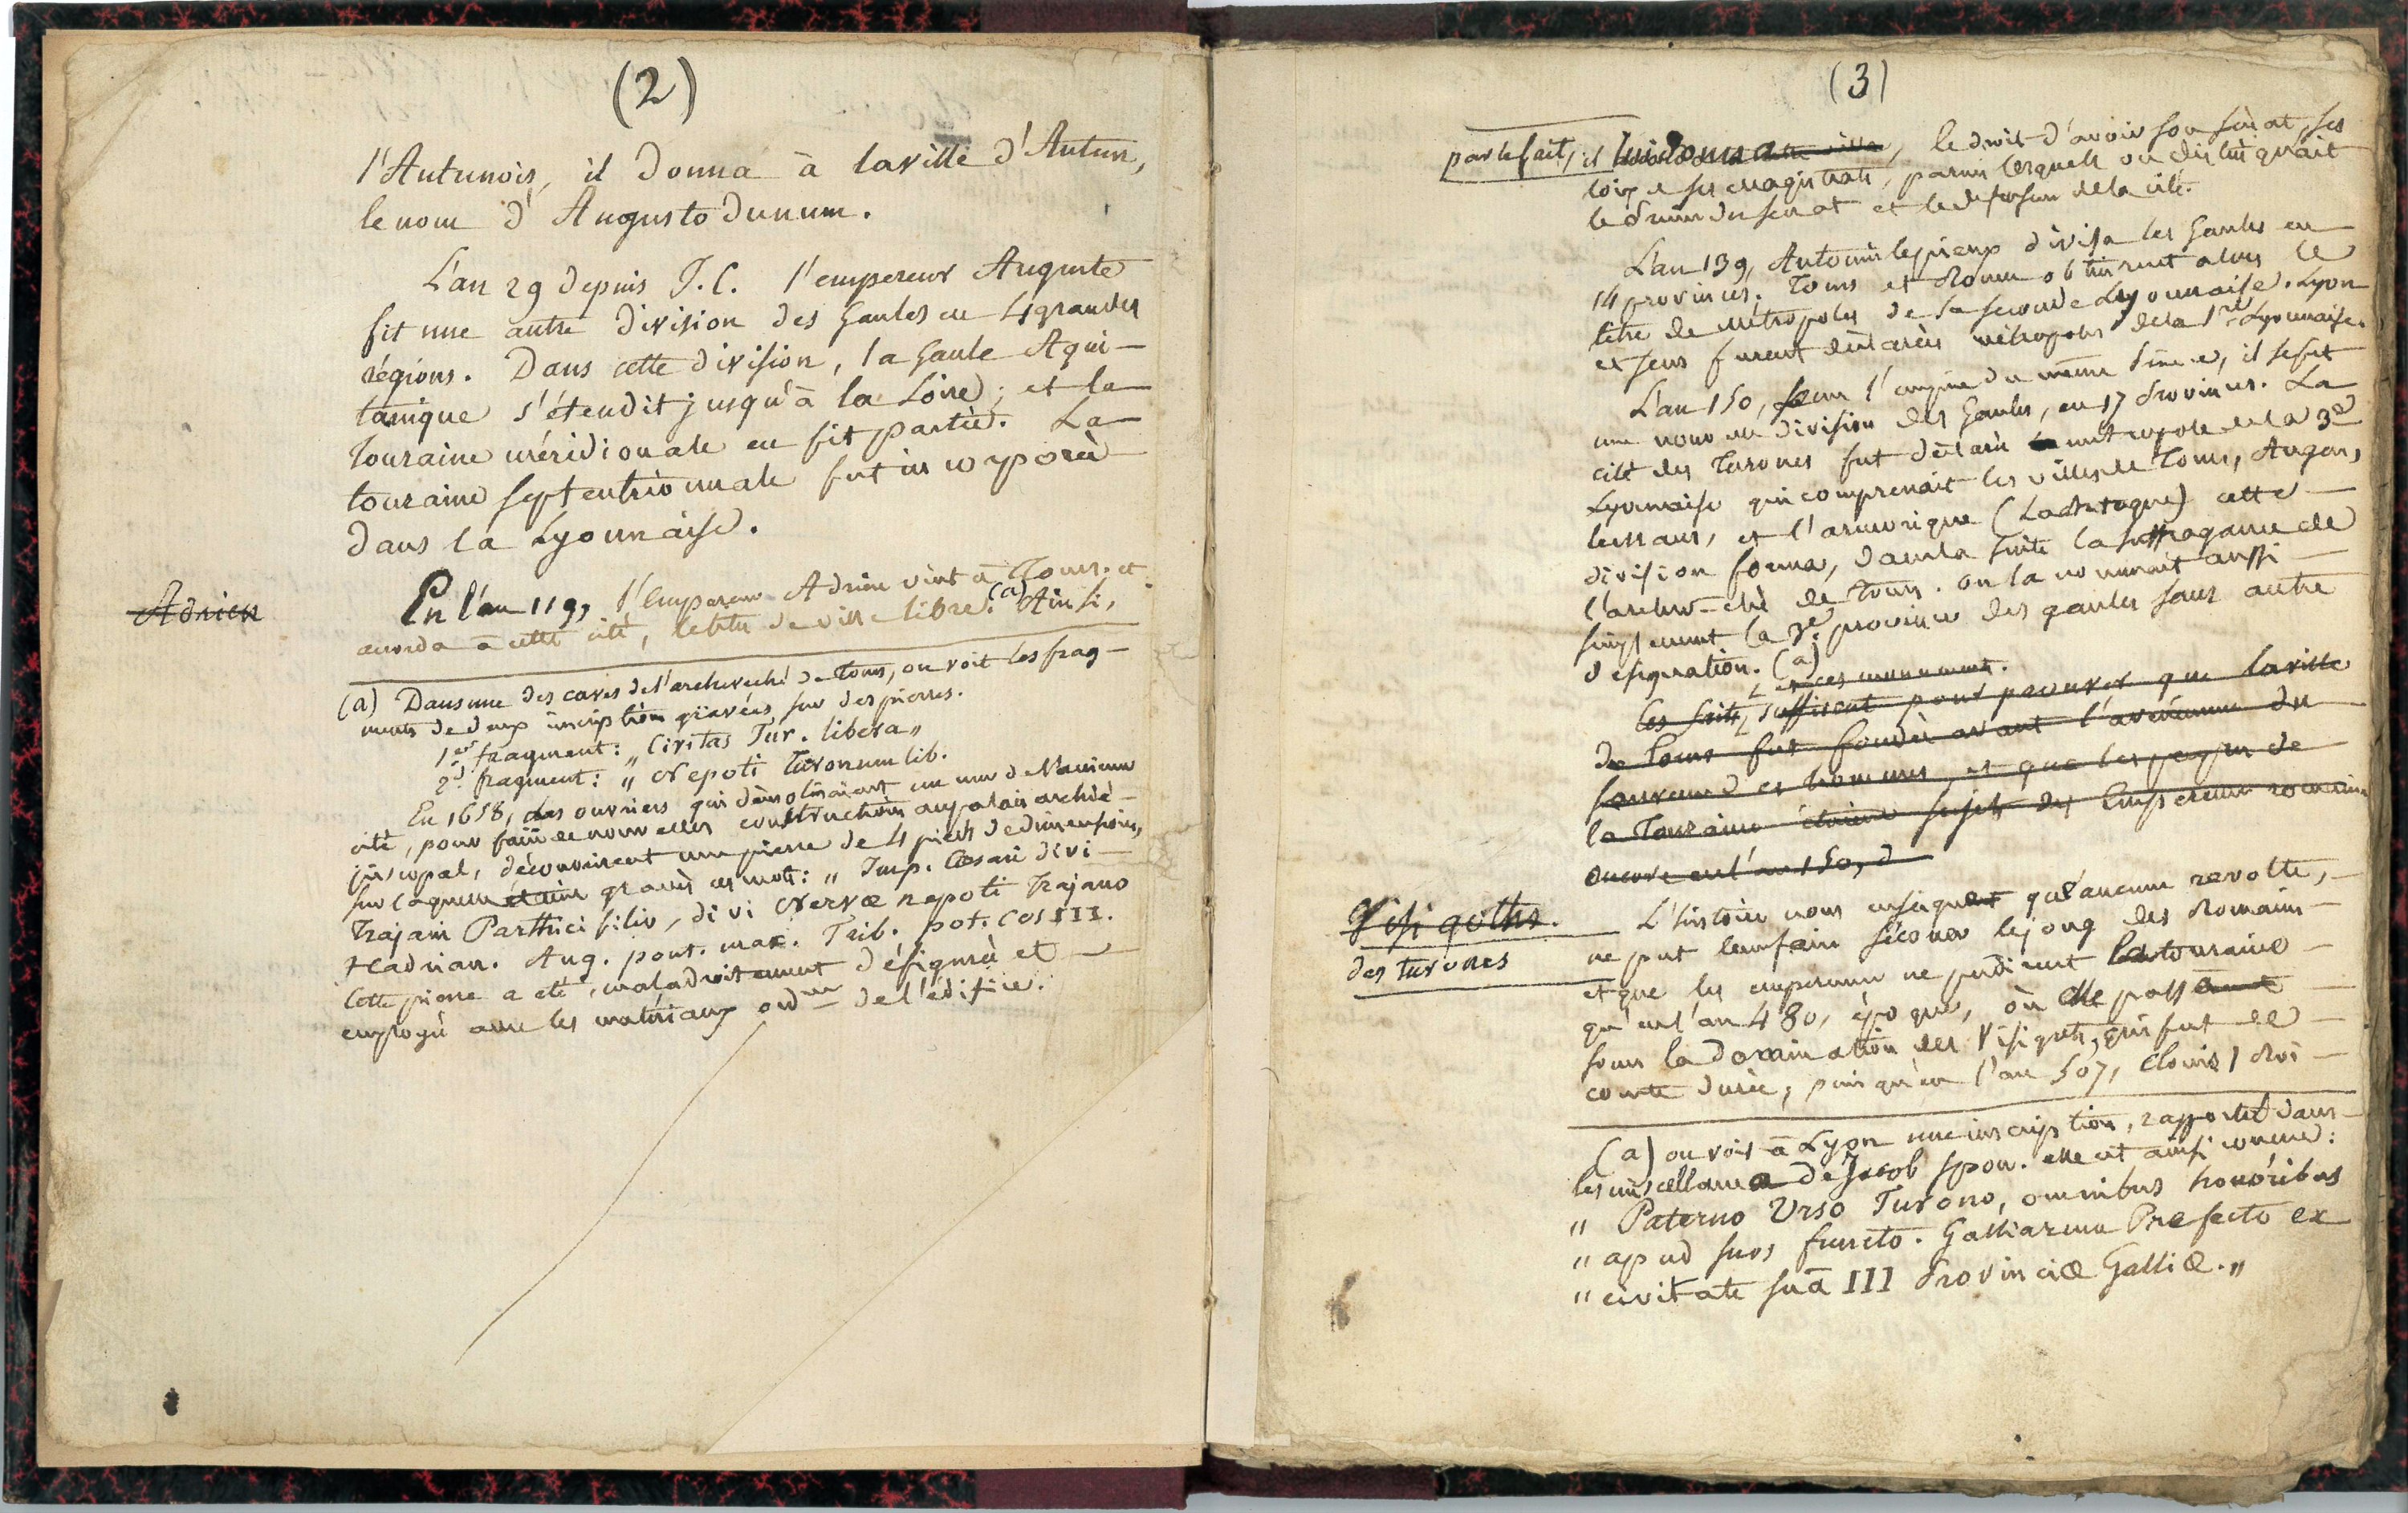 (2)
l'Autunois, il donna à la ville d'Autun,
le nom d'Augustodunum.
L'an 29 depuis J.C. l'empereur Auguste
fit une autre division des Gaules en 4 grandes
régions. Dans cette division, la Gaule Aqui-
tanique s'étendit jusqu'à la Loire; et la
Touraine méridionale en fit partie. La
touraine septentrionnale fut incorporée
dans la Lyonnaise.
Adrien
En l'an 119, l'empereur Adrien vint à Tours. et
accorda à cette cité, le titre de ville libre. (a) Ainsi,
(a) Dans une des caves de l'archevêché de Tours, on voit les frag-
ments de deux inscription gravées sur des pierres.
1er fragment: „ Civitas Tur. libera „
2d fragment: „ Nepoti Turonum lib.
En 1658, des ouvriers qui démolissaient un mur de l'ancienne
cité, pour faire de nouvelles constructions au palais archié-
piscopal, découvrirent une pierre de 4 pieds de dimensions,
sur laquelle étaient gravés ces mots: „ Imp. Cæsari divi
Trajani Parthici filio, divi Nervæ nepoti Trajano
Hadrian. Aug. pont. max. Trib. pot. Cos III.
Cette pierre a été, maladroitement défigurée et
employée avec les matériaux ordres de l'édifice.
(3)
par le fait, il lui donna, le droit d'avoir son sénat, ses
loix et ses magistrats, parmi lesquels on distinguait
le du senat et le defenseur de la cité.
L'an 139, Antonin le pieux divisa les Gaules en
14 provinces. Tours et Rouen obtinrent alors le
titre de métropoles de la seconde Lyonnaise. Lyon
et sens furent déclarées métropoles de la 1re Lyonnaise.
L'an 150, sous l'empire du même, il se fit
une nouvelle division des Gaules, en 17 Provinces. La
cité des Turones fut déclarée la métropole de la 3e
Lyonnaise qui comprenait les villes de Tours, Angers,
lemans, et l'armorique (La Bretagne) cette
division forma, dans la suite la suffragance de
l'archevêché de Tours. on la nommait aussi
simplement la 3e province des gaules sans autre
désignation. (a)
et ces monumens.
Ces faits, suffisent pour prouver que la ville
de Tours fut fondée avant l'avénement du
sauveur des hommes, et que les peuples de
la Touraine étaient sujets des Empereurs romains
encore en l'an 150, d
Visigoths.
des turones
L'histoire nous enseigne qu'aucune revolte,
ne put leur faire sécouer le joug des Romains
et que les empereurs ne perdirent la touraine
qu'en l'an 480, époque, où elle passa
sous la domination des Visigots, qui fut de
courte durée; puis qu'en l'an 507, Clovis 1 Roi
(a) on voit à Lyon une inscription, rapportée dans
les miscellanea de Jacob spon. elle est ainsi conçue:
„ Paterno Urso Turono, omnibus honoribus
„ apud suos functo. Galliarum Prefecto ex
„ civitate suâ III Provinciæ Galliæ. „